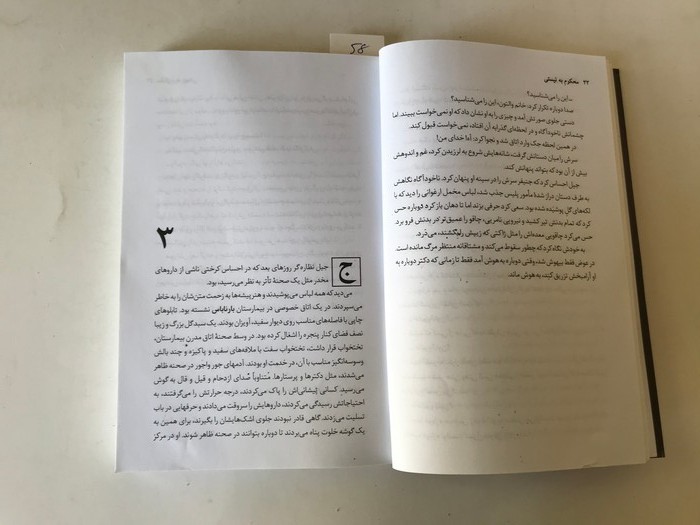 58
۲۲ محکوم به نیستی
ـ این را می‌شناسید؟
صدا دوباره تکرار کرد. خانم والتون، این را می‌شناسید؟
دستی جلوی صورتش آمد و چیزی را به او نشان داد که او نمی‌خواست ببیند. اما
چشمانش ناخودآگاه و در لحظه‌ای گذرا به آن افتاد، نمی‌خواست قبول کند.
در همین لحظه جک وارد اتاق شد و نجوا کرد: آه! خدای من!
سرش را میان دستانش گرفت، شانه‌هایش شروع به لرزیدن کرد، غم و اندوهش
بیش از آن بود که بتواند پنهانش کند.
جیل احساس کرد که جنیفر سرش را در سینه او پنهان کرد. ناخودآگاه نگاهش
به طرف دستان دراز شدهٔ مأمور پلیس جذب شد، لباس مخمل ارغوانی را دید که با
لکه‌های گل پوشیده شده بود. سعی کرد حرفی بزند اما تا دهان باز کرد دوباره حس
کرد که تمام بدنش تیر کشید و نیرویی نامریی، چاقو را عمیق‌تر در بدنش فرو برد.
حس می‌کرد چاقویی معده‌اش را مثل ژاکتی که زیپش را بکشند، می‌دَرَد.
به خودش نگاه کرد که چطور سقوط می‌کند و مشتاقانه منتظر مرگ مانده است.
در عوض فقط بیهوش شد، وقتی دوباره به هوش آمد فقط تا زمانی که دکتر دوباره به
او آرامبخش تزریق کند، به هوش ماند.
۳
جیل نظاره‌گر روزهای بعد که در احساس کرختی ناشی از داروهای
مخدر مثل یک صحنهٔ تأتر به نظر می‌رسید، بود.
می‌دید که همه لباس می‌پوشیدند و هنرپیشه‌ها به زحمت متن‌شان را به خاطر
می‌سپردند. در یک اتاق خصوصی در بیمارستان بارناباس نشسته بود. تابلوهای
چاپی با فاصله‌های مناسب روی دیوار سفید، آویزان بودند. یک سبد گل بزرگ و زیبا
نصف فضای کنار پنجره را اشغال کرده بود. در وسط صحنهٔ اتاق مدرن بیمارستان،
تختخواب قرار داشت، تختخواب سفت با ملافه‌های سفید و پاکیزه و چند بالش
وسوسه‌انگیز مناسب با آن، در خدمت او بودند. آدمهای جور واجور در صحنه ظاهر
می‌شدند، مثل دکترها و پرستارها. متناوباً صدای ازدحام و قیل و قال به گوش
می‌رسید. کسانی پیشانی‌اش را پاک می‌کردند، درجه حرارتش را می‌گرفتند، به
احتیاجاتش رسیدگی می‌کردند، داروهایش را سروقت می‌دادند و حرفهایی در باب
تسلیت می‌زدند. گاهی قادر نبودند جلوی اشک‌هایشان را بگیرند، برای همین به
یک گوشه خلوت پناه می‌بردند تا دوباره بتوانند در صحنه ظاهر شوند. او در مرکز